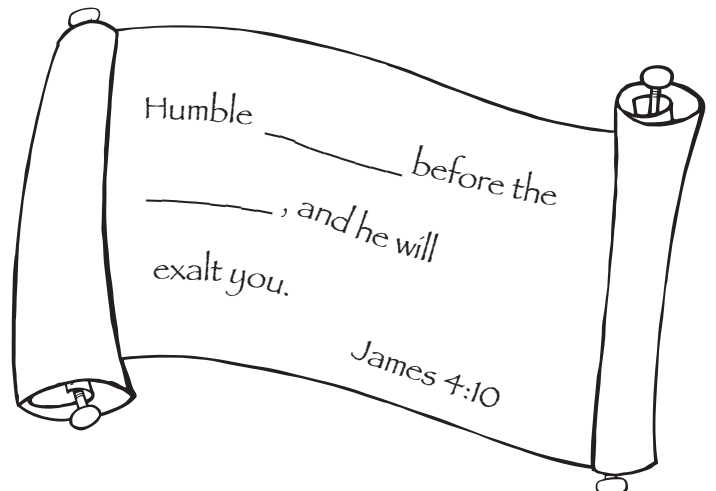 Humble __________ before the
__________, and he will
exalt you.
James 4:10